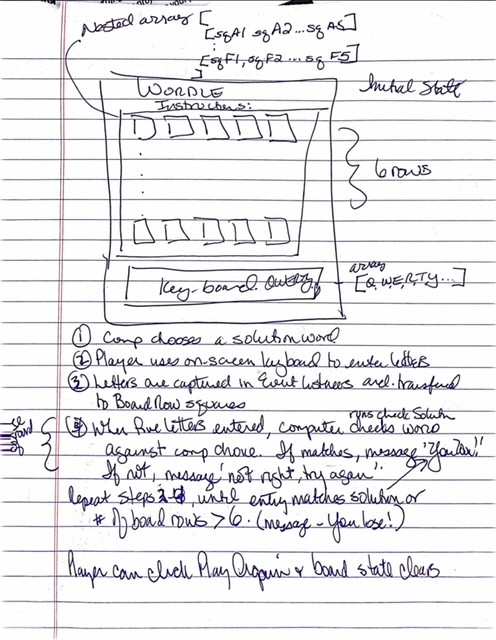 Nested array [
[sqA1 sqA2...sqA5
[sqF1, sqF2...sq F5]
]
WORDLE
Instructions:
Initial State
6 rows
Key-board. QWERTY
array
[Q,W,E,R,T,Y...]
① Comp chooses a solution word
② Player uses on-screen keyboard to enter letters
③ Letters are captured in Event listeners and transferred
to Board Row squares
runs check Solution
④ When five letters entered, computer checks word
against comp choice. If matches, message "You Won!"
If not, message 'not right, try again'.
Repeat steps 2-4, until entry matches solution or
# of board rows > 6. (message - You lose!)
Player can click Play Again & board state clears